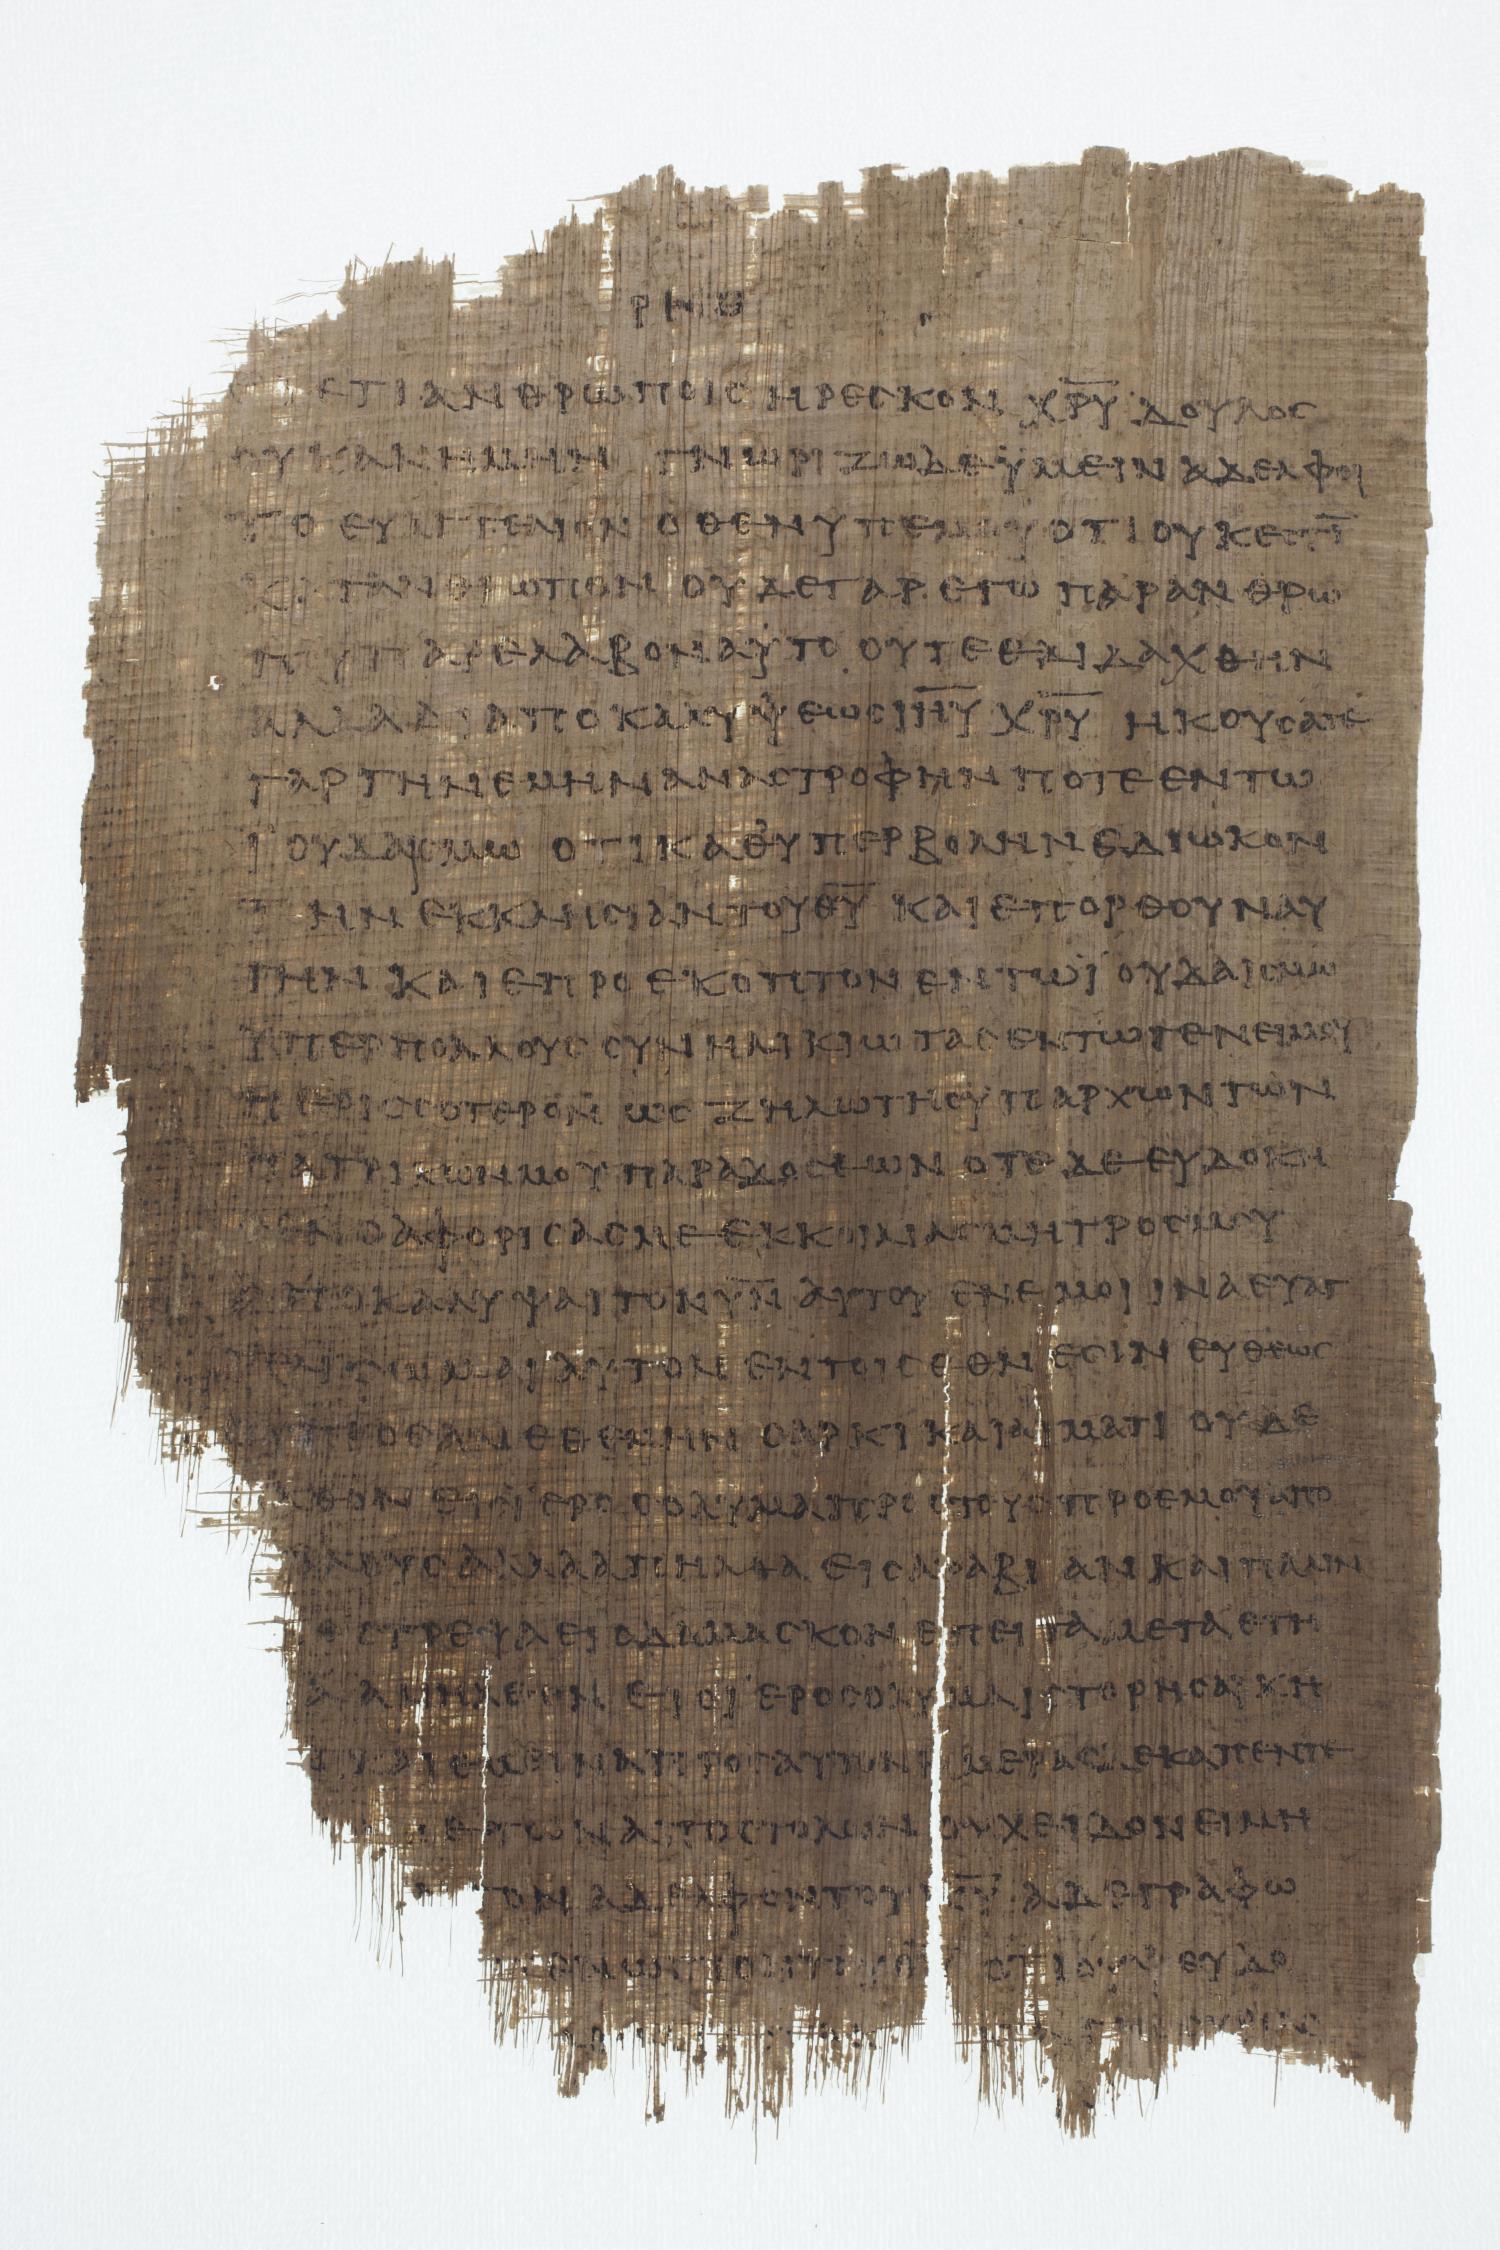 ΡΝΘ
ΕΤΙ ΑΝΘΡΩΠΟΙΣ ΗΡΕΣΚΟΝ ΧΡΥ ΔΟΥΛΟΣ
ΟΥΚ ΑΝ ΗΜΗΝ ΓΝΩΡΙΖΩ ΔΕ ΫΜΕΙΝ ΑΔΕΛΦΟΙ
ΤΟ ΕΥΑΓΓΕΛΙΟΝ Ο ΘΕΝ ΥΠ ΕΜΟΥ ΟΤΙ ΟΥΚ ΕΣΤΙ
ΚΑΤ ΑΝΘΡΩΠΟΝ ΟΥΔΕ ΓΑΡ ΕΓΩ ΠΑΡ ΑΝΘΡΩ
ΠΟΥ ΠΑΡΕΛΑΒΟΝ ΑΥΤΟ ΟΥΤΕ ΕΔΙΔΑΧΘΗΝ
ΑΛΛΑ ΔΙ ΑΠΟΚΑΛΥΨΕΩΣ ΙΗΥ ΧΡΥ ΗΚΟΥΣΑΤΕ
ΓΑΡ ΤΗΝ ΕΜΗΝ ΑΝΑΣΤΡΟΦΗΝ ΠΟΤΕ ΕΝ ΤΩ
ΪΟΥΔΑΙΣΜΩ ΟΤΙ ΚΑΘ ΥΠΕΡΒΟΛΗΝ ΕΔΙΩΚΟΝ
ΤΗΝ ΕΚΚΛΗΣΙΑΝ ΤΟΥ ΘΥ ΚΑΙ ΕΠΟΡΘΟΥΝ ΑΥ
ΤΗΝ ΚΑΙ ΕΠΡΟΕΚΟΠΤΟΝ ΕΝ ΤΩ ΪΟΥΔΑΙΣΜΩ
ΫΠΕΡ ΠΟΛΛΟΥΣ ΣΥΝΗΛΙΚΙΩΤΑΣ ΕΝ ΤΩ ΓΕΝΕΙ ΜΟΥ
ΠΕΡΙΣΣΟΤΕΡΟΝ ΩΣ ΖΗΛΩΤΗΣ ΥΠΑΡΧΩΝ ΤΩΝ
ΠΑΤΡΙΚΩΝ ΜΟΥ ΠΑΡΑΔΟΣΕΩΝ ΟΤΕ ΔΕ ΕΥΔΟΚΗ
ΣΕΝ Ο ΑΦΟΡΙΣΑΣ ΜΕ ΕΚ ΚΟΙΛΙΑΣ ΜΗΤΡΟΣ ΜΟΥ
ΑΠΟΚΑΛΥΨΑΙ ΤΟΝ ΥΝ ΑΥΤΟΥ ΕΝ ΕΜΟΙ ΙΝΑ ΕΥΑΓ
ΓΕΛΙΣΩΜΑΙ ΑΥΤΟΝ ΕΝ ΤΟΙΣ ΕΘΝΕΣΙΝ ΕΥΘΕΩΣ
ΟΥ ΠΡΟΣΑΝΕΘΕΜΗΝ ΣΑΡΚΙ ΚΑΙ ΑΙΜΑΤΙ ΟΥΔΕ
ΗΛΘΟΝ ΕΙΣ ΪΕΡΟΣΟΛΥΜΑ ΠΡΟΣ ΤΟΥΣ ΠΡΟ ΕΜΟΥ ΑΠΟ
ΣΤΟΛΟΥΣ ΑΛΛΑ ΑΠΗΛΘΑ ΕΙΣ ΑΡΑΒΙΑΝ ΚΑΙ ΠΑΛΙΝ
ΥΠΕΣΤΡΕΨΑ ΕΙΣ ΔΑΜΑΣΚΟΝ ΕΠΕΙΤΑ ΜΕΤΑ ΕΤΗ
ΑΝΗΛΘΟΝ ΕΙΣ ΪΕΡΟΣΟΛΥΜΑ ΙΣΤΟΡΗΣΑΙ ΚΗ
ΚΑΙ ΕΜΕΙΝΑ ΠΡΟΣ ΑΥΤΟΝ ΗΜΕΡΑΣ ΔΕΚΑΠΕΝΤΕ
ΕΡΟΝ ΤΩΝ ΑΠΟΣΤΟΛΩΝ ΟΥΧ ΕΙΔΟΝ ΕΙ ΜΗ
ΤΟΝ ΑΔΕΛΦΟΝ ΤΟΥ ΚΥ Α ΔΕ ΓΡΑΦΩ
ΕΝΩΠΙΟΝ ΤΟΥ ΘΥ ΟΤΙ ΟΥ ΨΕΥΔΟ